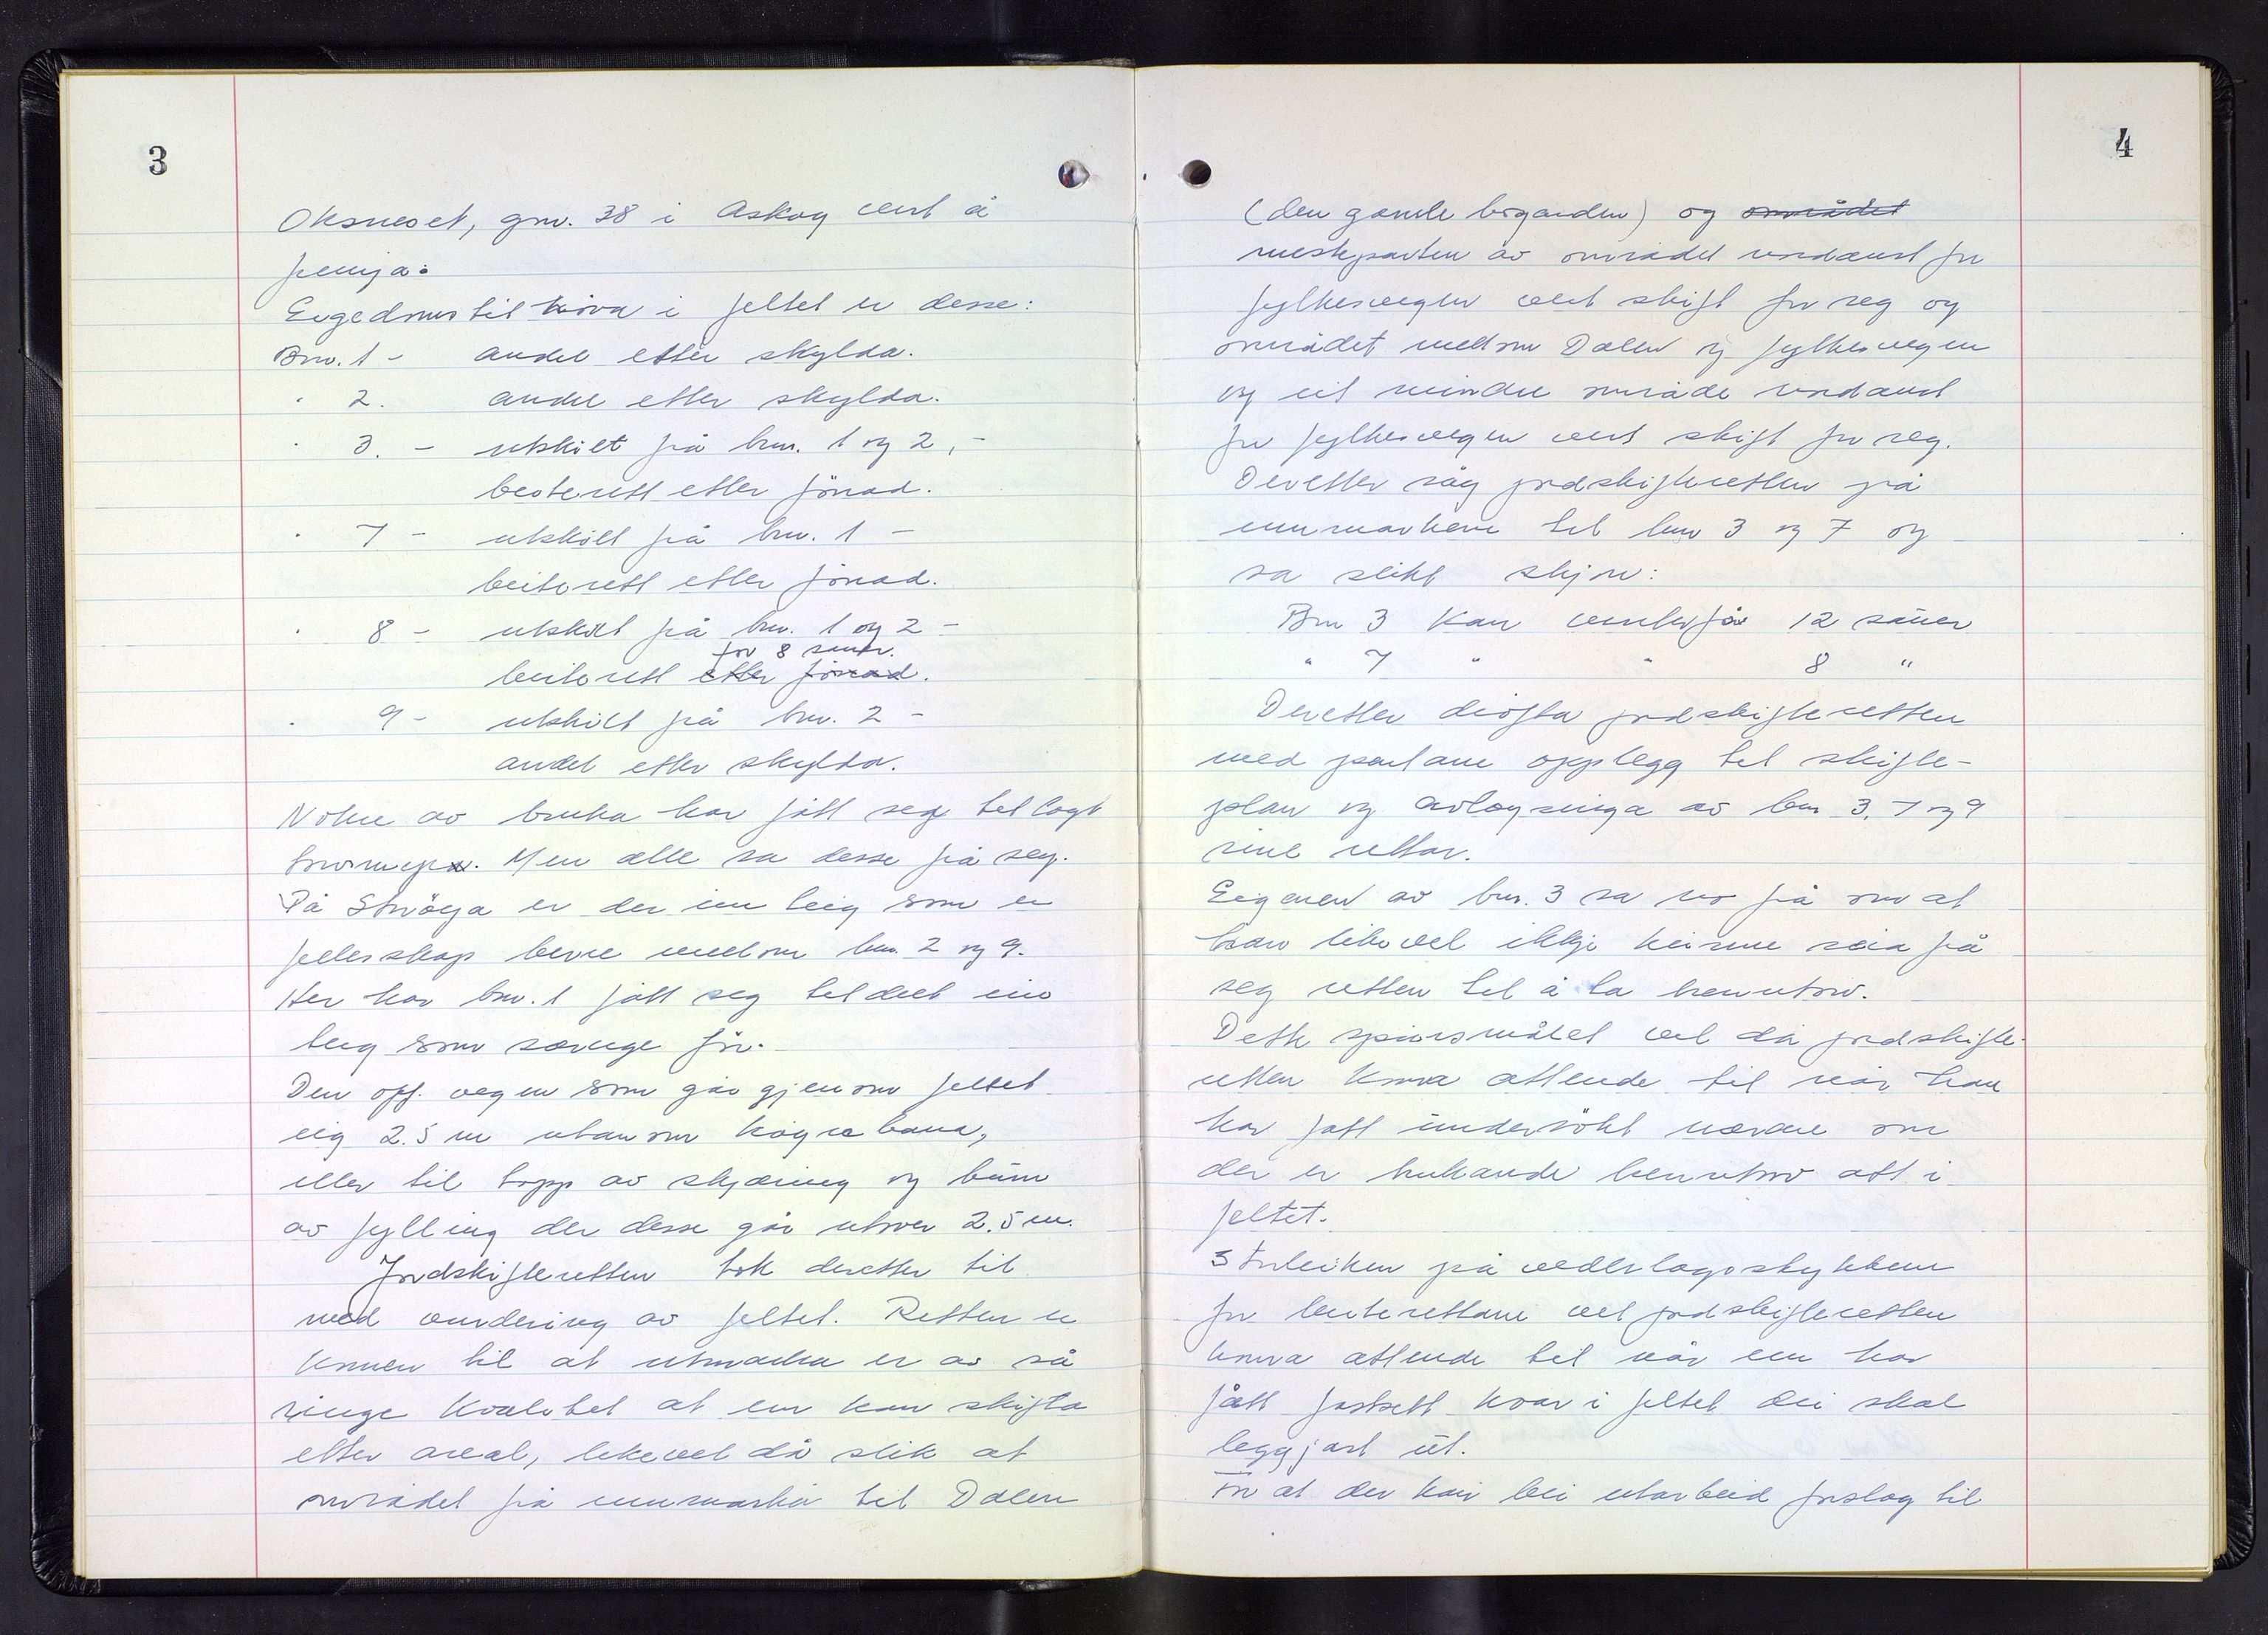 3
Oksneset, gnr. 38 i Askøy vert å
fremja:
Eigedomstilhøva i feltet er desse:
Bnr. 1 - andel etter skylda.
" 2. andel etter skylda.
" 3. - utskilt frå bnr. 1 og 2, -
beiterett etter fönad.
" 7 - utskilt frå bnr. 1 -
beiterett etter fönad.
" 8 - utskilt frå bnr. 1 og 2 -
for 8 sauer.
beiterett etter fönad.
" 9 - utskilt frå bnr. 2 -
andel etter skylda.
Nokre av bruka har fått seg tillagt
torvmyr. Men alle sa desse frå seg.
På Ströya er der ein teig som er
fellesskap berre mellom bnr. 2 og 9.
Her har bnr. 1 fått seg tildelt ein
teig som særeige för.
Den off. vegen som går gjennom feltet
eig 2.5 m utanom köyrebana,
eller til topp av skjæring og botn
av fylling der desse går utover 2.5 m.
Jordskifteretten tok deretter til
med vurdering av feltet. Retten er
komen til at utmarka er av så
ringe kvalitet at ein kan skifta
etter areal, likevel då slik at
området frå innmarka til Dalen
4
(den gamle bögarden) og området
mestparten av området nordaust for
fylkesvegen vert skift for seg og
området mellom Dalen og fylkesvegen
og eit mindre område nordaust
for fylkesvegen vert skift for seg.
Deretter såg jordskifteretten på
innmarkene til bnr 3 og 7 og
sa slikt skjön:
Bnr 3 kan vinterfôr 12 sauer
" 7 " " 8 "
Deretter dröfta jordskifteretten
med partane opplegg til skifte-
plan og avløysinga av bnr 3, 7 og 9
sine rettar.
Eigaren av bnr. 3 sa no frå om at
han likevel ikkje kunne seia frå
seg retten til å ta brenntorv.
Dette spörsmålet vil då jordskifte-
retten koma attende til når han
har fått undersökt nærare om
der er brukande brenntorv att i
feltet.
Storleiken på vederlagsstykkene
for beiterettane vil jordskifteretten
koma attende til når ein har
fått fastsett kvar i feltet dei skal
leggjast ut.
For at der kan bli utarbeid forslag til